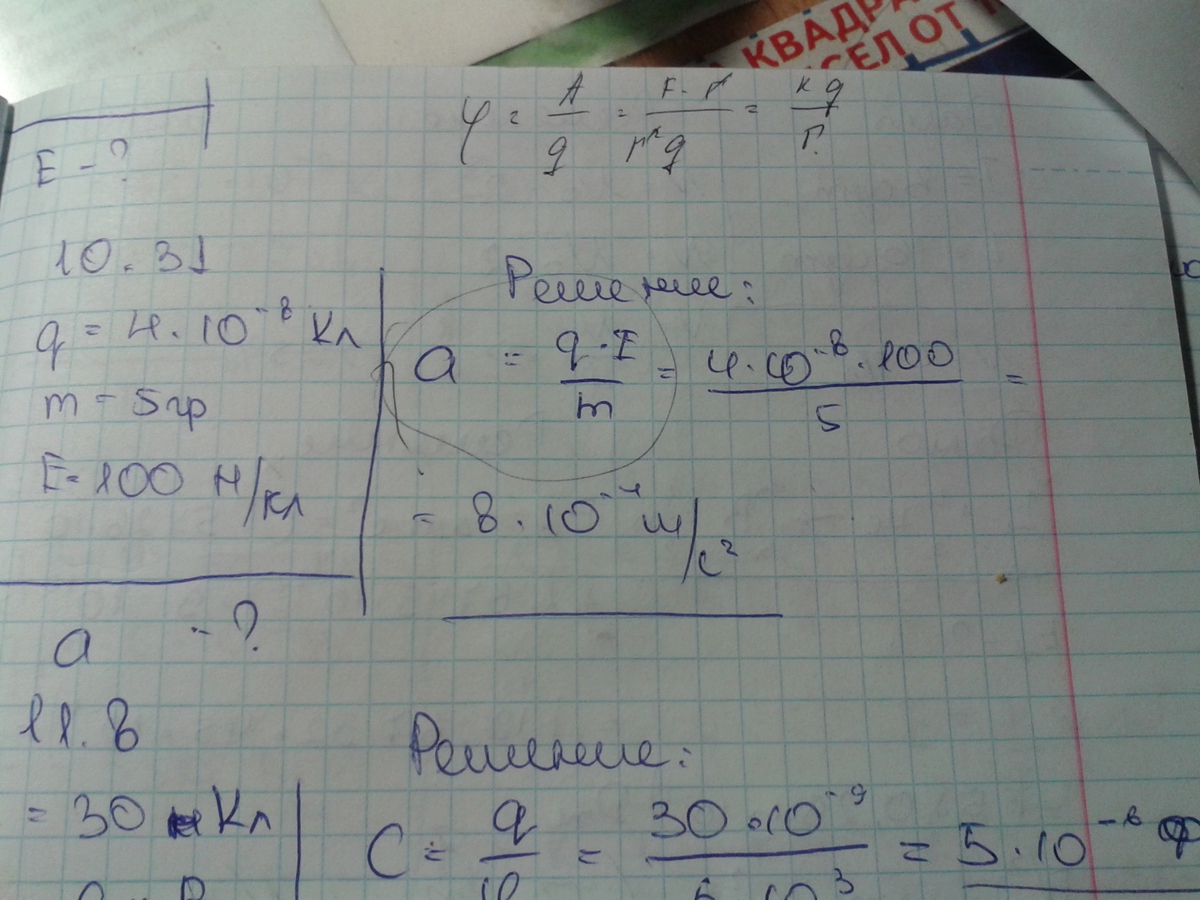 КВАДРА
СЕЛ ОТ
φ = A/q = F·r/r²q = kq/r
E - ?
10.31
q = 4·10⁻⁸ Кл
m = 5гр
E = 100 Н/Кл
a - ?
Решение:
a = q·E/m = 4·10⁻⁸·100/5 =
= 8·10⁻⁴ м/с²
11.8
= 30 нКл
Решение:
C = q/φ = 30·10⁻⁹/6·10³ = 5·10⁻⁸ Ф